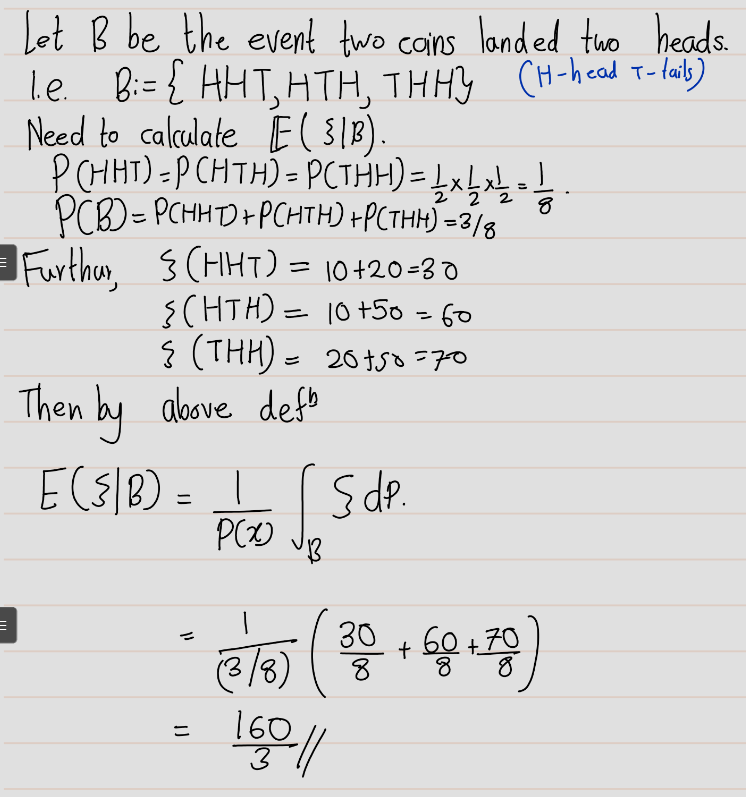 Let B be the event two coins landed two heads.
I.e. B:= { HHT, HTH, THH} (H-head T-tails)
Need to calculate E(ξ|B).
P(HHT)=P(HTH)=P(THH)=1/2×1/2×1/2=1/8.
P(B)=P(HHT)+P(HTH)+P(THH)=3/8
Furthur, ξ(HHT) = 10+20=30
ξ(HTH) = 10+50=60
ξ(THH) = 20+50=70
Then by above defⁿ
E(ξ|B) = 1/P(x) ∫_B ξ dP.
= 1/(3/8) (30/8 + 60/8 + 70/8)
= 160/3 //